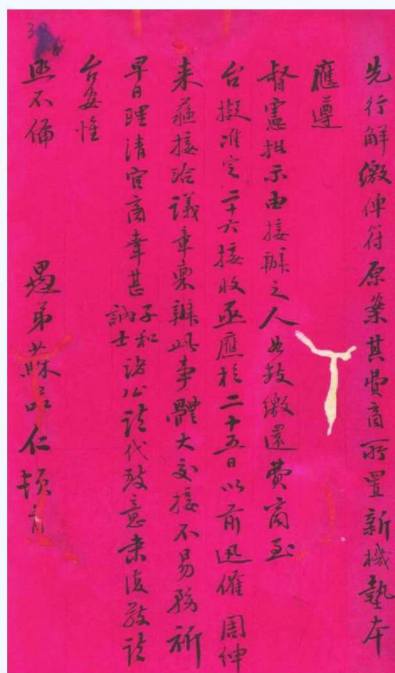 先行解繳俾符原案其費商所置新機墊本
應遵
督憲批示由接辦之人如數繳還費商至
台擬准定二十六接收亟應於二十五日以前迅催周仲
來蘇接洽議章稟辦此事體大交接不易務祈
早日理清官商幸甚子和 士諸公請代致意耑復敬請
台安惟
照不備
愚弟蘇品仁頓首